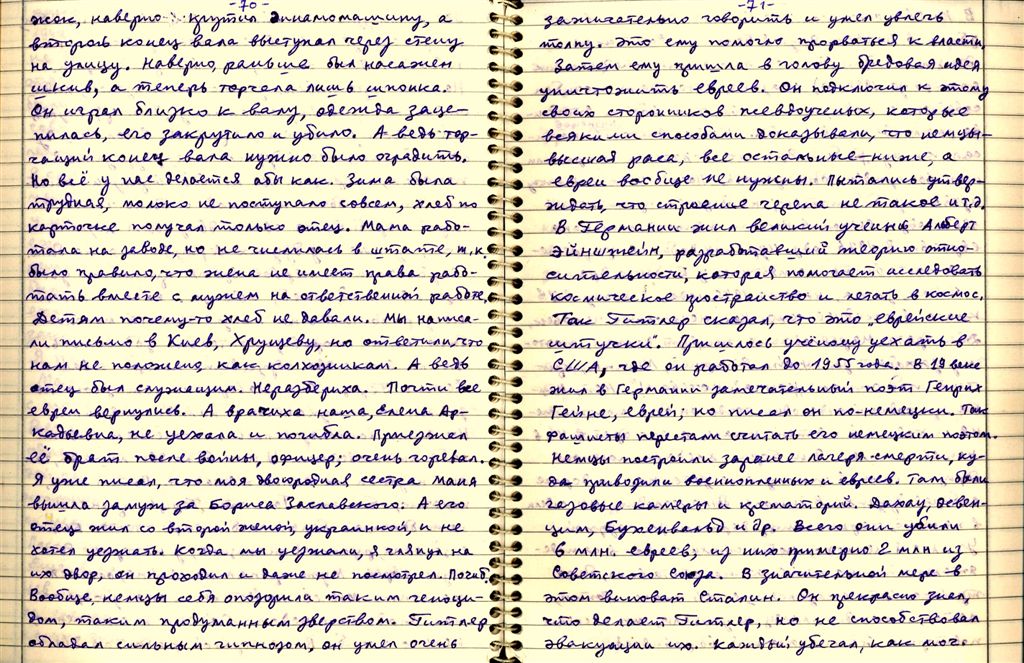 -70-
жок, наверно крутил динамомашину, а
второй конец вала выступал через стену
на улицу. Наверно, раньше был насажен
шкив, а теперь торчала лишь шпонка.
Он играл близко к валу, одежда заце-
пилась, его закрутило и убило. А ведь тор-
чащий конец вала нужно было оградить.
Но всё у нас делается абы как. Зима была
трудная, молоко не поступало совсем, хлеб по
карточке получал только отец. Мама рабо-
тала на заводе, но не числилась в штате, т.к.
было правило, что жена не имеет права рабо-
тать вместе с мужем на ответственной работе.
Детям почему-то хлеб не давали. Мы написа-
ли письмо в Киев, Хрущеву, но ответили, что
нам не положено, как колхозникам. А ведь
отец был служащим. Неразбериха. Почти все
евреи вернулись. А врачиха наша, Елена Ар-
кадьевна, не уехала и погибла. Приезжал
её брат после войны, офицер; очень горевал.
Я уже писал, что моя двоюродная сестра Маня
вышла замуж за Бориса Заславского. А его
отец жил со второй женой, украинкой, и не
хотел уезжать. Когда мы уезжали, я глянул на
их двор, он проходил и даже не посмотрел. Погиб.
Вообще, немцы себя опозорили таким геноци-
дом, таким продуманным зверством. Гитлер
обладал сильным гипнозом, он умел очень
-71-
зажигательно говорить и умел увлечь
толпу. Это ему помогло прорваться к власти.
Затем ему пришла в голову бредовая идея
уничтожить евреев. Он подключил к этому
своих сторонников псевдоученых, которые
всякими способами доказывали, что немцы-
высшая раса, все остальные-ниже, а
евреи вообще не нужны. Пытались утвер-
ждать, что строение черепа не такое и т.д.
В Германии жил великий ученый Альберт
Эйнштейн, разработавший теорию отно-
сительности, которая помогает исследовать
космическое пространство и летать в космос.
Так Гитлер сказал, что это „еврейские
штучки". Пришлось учёному уехать в
США, где он работал до 1955 года. В 19 веке
жил в Германии замечательный поэт Генрих
Гейне, еврей; но писал он по-немецки. Так
фашисты перестали считать его немецким поэтом.
Немцы построили заранее лагеря смерти, ку-
да приводили военнопленных и евреев. Там были
газовые камеры и крематорий. Дахау, Освен-
цим, Бухенвальд и др. Всего они убили
6 млн. евреев, из них примерно 2 млн из
Советского Союза. В значительной мере в
этом виноват Сталин. Он прекрасно знал,
что делает Гитлер, но не способствовал
эвакуации их. Каждый убегал, как мог.